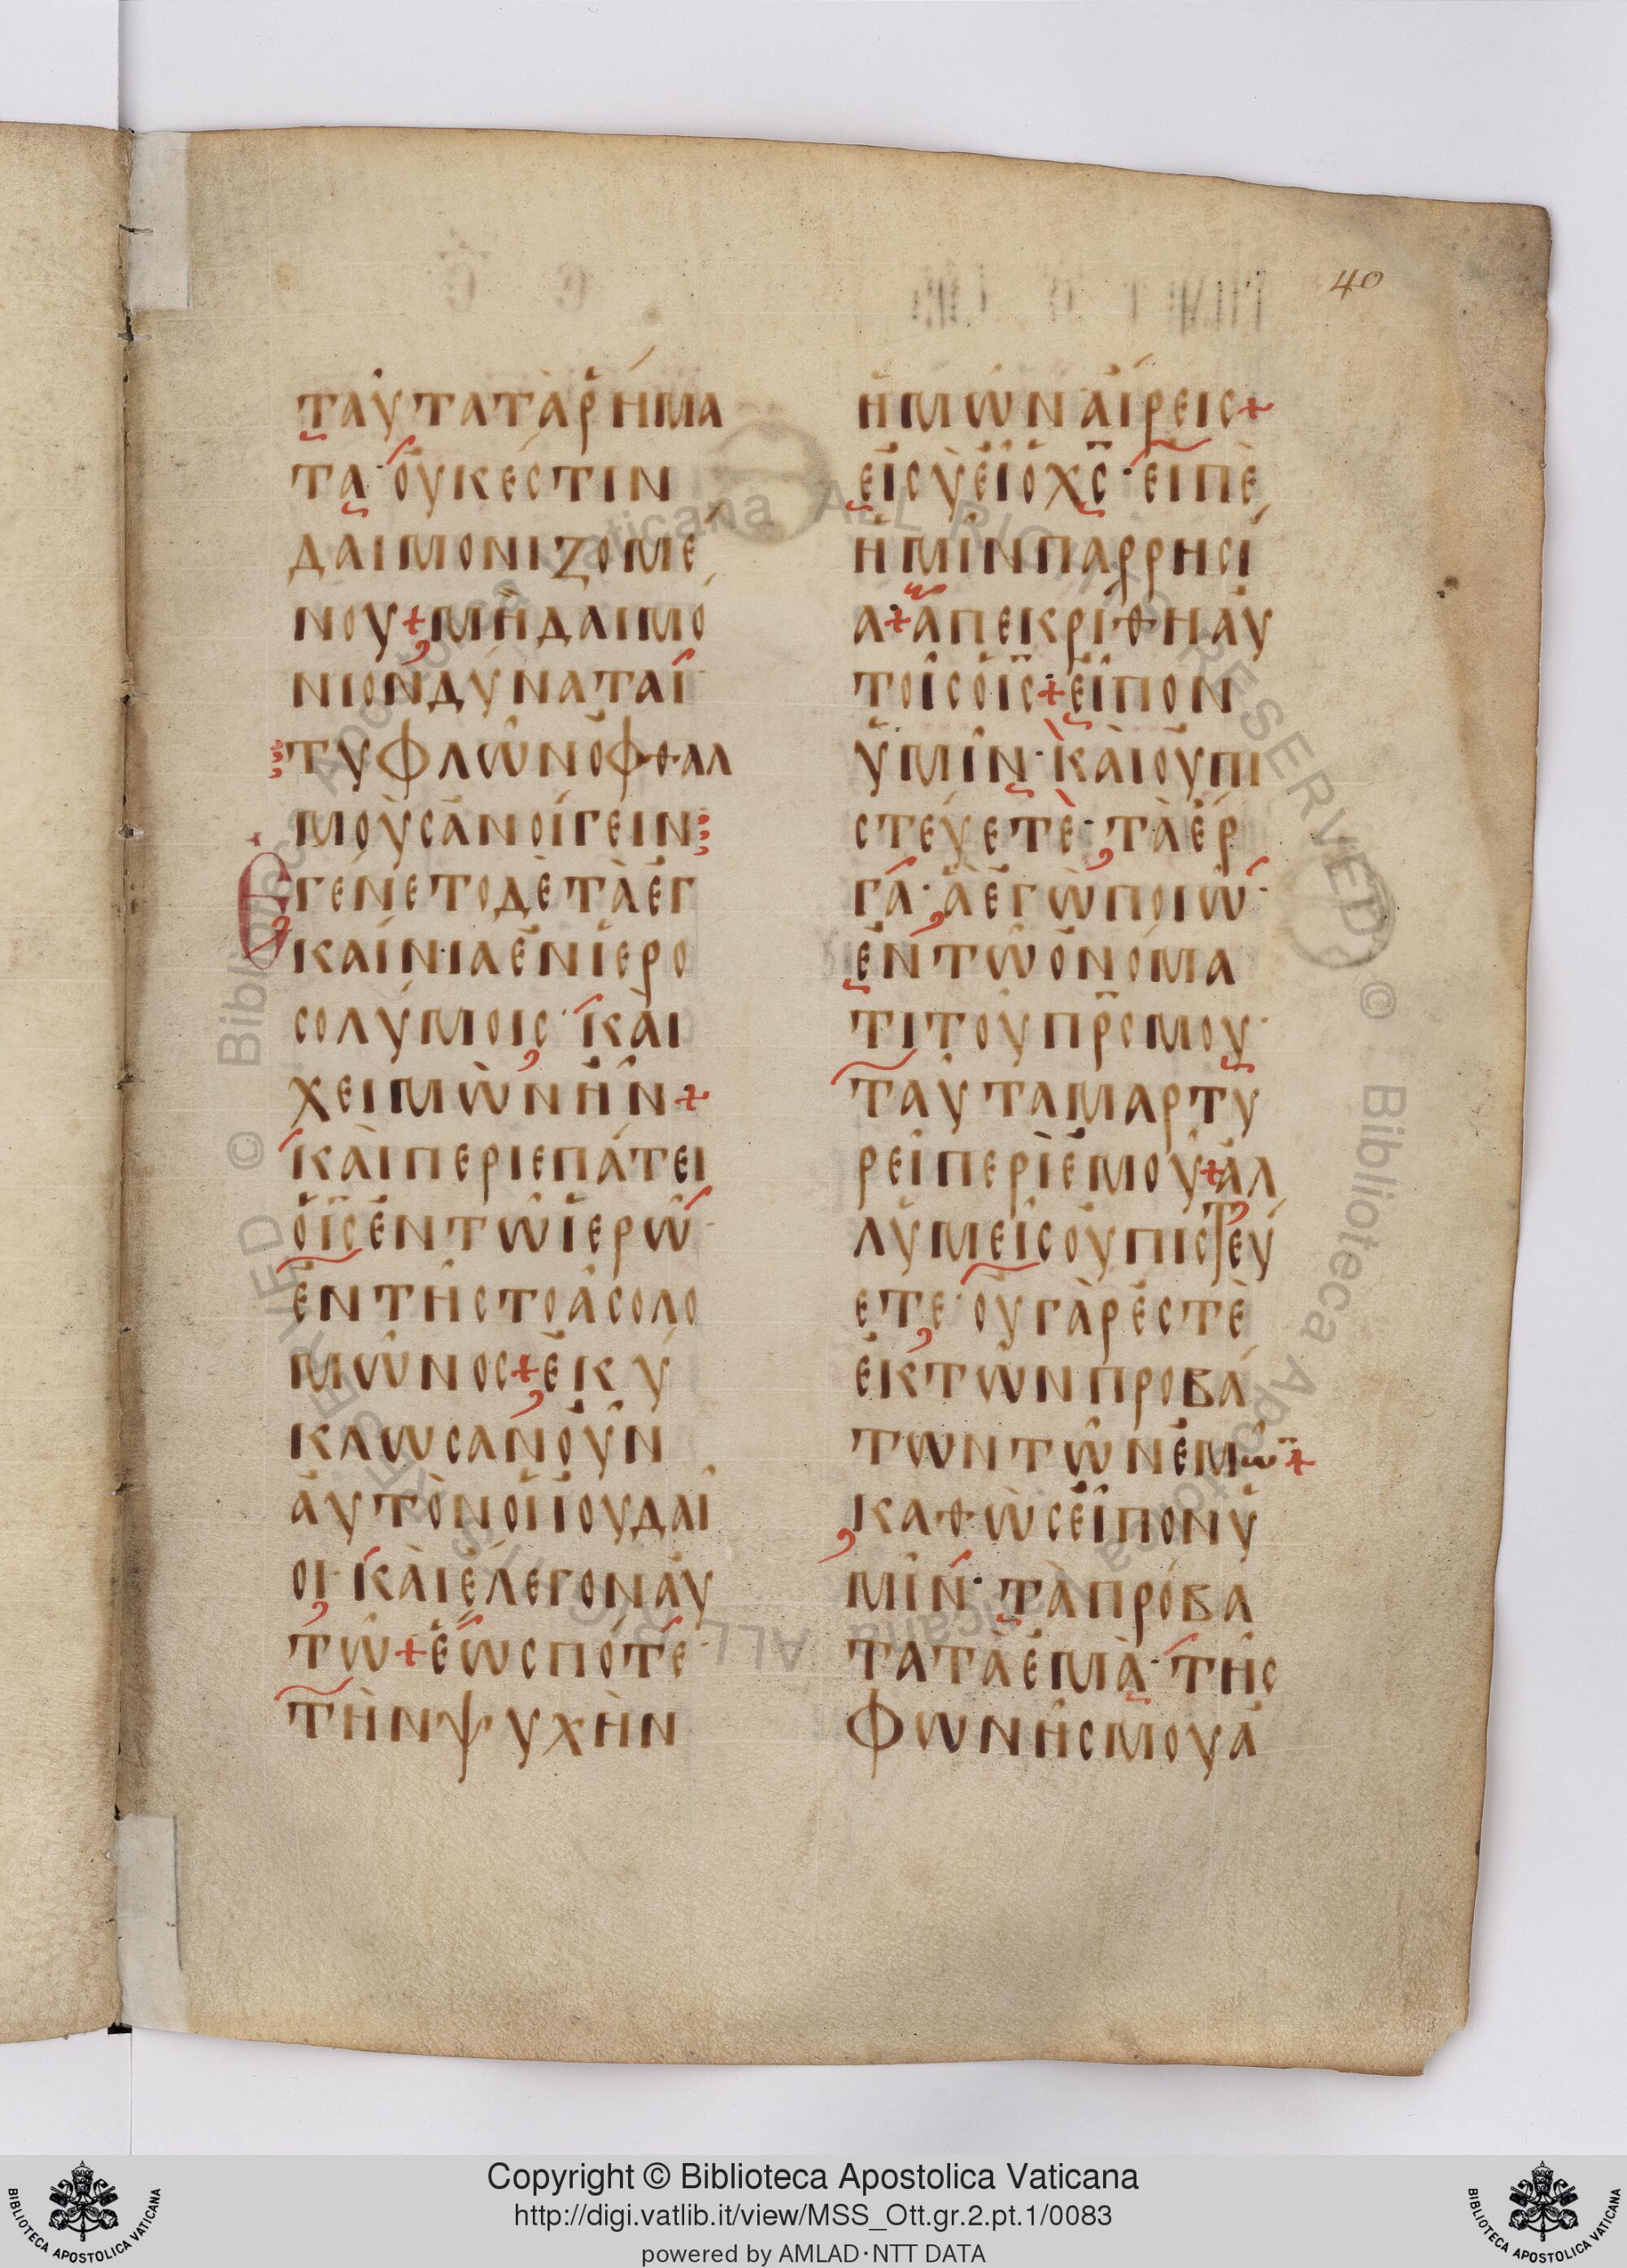 40
ΤΑΥΤΑΤΑΡΗΜΑ
ΤΑ·ΟΥΚΕΣΤΙΝ
ΔΑΙΜΟΝΙΖΟΜΕ
ΝΟΥ+ΜΗΔΑΙΜΟ
ΝΙΟΝΔΥΝΑΤΑΙ·
ΤΥΦΛΩΝΟΦΘΑΛ
ΜΟΥΣΑΝΟΙΓΕΙΝ⁝
ΕΓΕΝΕΤΟΔΕΤΑΕΓ
ΚΑΙΝΙΑΕΝΙΕΡΟ
ΣΟΛΥΜΟΙΣ·ΚΑΙ
ΧΕΙΜΩΝΗΝ+
ΚΑΙΠΕΡΙΕΠΑΤΕΙ
ΟΙΣΕΝΤΩΙΕΡΩ·
ΕΝΤΗΣΤΟΑΣΟΛΟ
ΜΩΝΟΣ+ΕΚΥ
ΚΛΩΣΑΝΟΥΝ
ΑΥΤΟΝΟΙΙΟΥΔΑΙ
ΟΙ·ΚΑΙΕΛΕΓΟΝΑΥ
ΤΩ+ΕΩΣΠΟΤΕ·
ΤΗΝΨΥΧΗΝ
ΗΜΩΝΑΙΡΕΙΣ+
ΕΙΣΥΕΙΟΧΣ·ΕΙΠΕ
ΗΜΙΝΠΑΡΡΗΣΙ
Α+ΑΠΕΚΡΙΘΗΑΥ
ΤΟΙΣΟΙΣ+ΕΙΠΟΝ
ΥΜΙΝ·ΚΑΙΟΥΠΙ
ΣΤΕΥΕΤΕ·ΤΑΕΡ
ΓΑ·ΑΕΓΩΠΟΙΩ·
ΕΝΤΩΟΝΟΜΑ
ΤΙΤΟΥΠΡΣΜΟΥ·
ΤΑΥΤΑΜΑΡΤΥ
ΡΕΙΠΕΡΙΕΜΟΥ+ΑΛ
ΛΥΜΕΙΣΟΥΠΙΣΤΕΥ
ΕΤΕ·ΟΥΓΑΡΕΣΤΕ
ΕΚΤΩΝΠΡΟΒΑ
ΤΩΝΤΩΝΕΜΩ̄+
ΚΑΘΩΣΕΙΠΟΝΥ
ΜΙΝ·ΤΑΠΡΟΒΑ
ΤΑΤΑΕΜΑ·ΤΗΣ
ΦΩΝΗΣΜΟΥΑ
Copyright © Biblioteca Apostolica Vaticana
http://digi.vatlib.it/view/MSS_Ott.gr.2.pt.1/0083
powered by AMLAD·NTT DATA
BIBLIOTECA APOSTOLICA VATICANA
BIBLIOTECA APOSTOLICA VATICANA
© Biblioteca Apostolica Vaticana ALL RIGHTS RESERVED
© Biblioteca Apostolica Vaticana ALL RIGHTS RESERVED